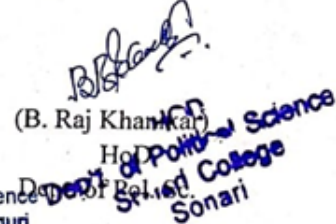 (B. Raj Khanikar)
HoD
Dept. of Pol. Sc.
HoD
Dept. of Political Science
Sonari College
Sonari
ence
guri